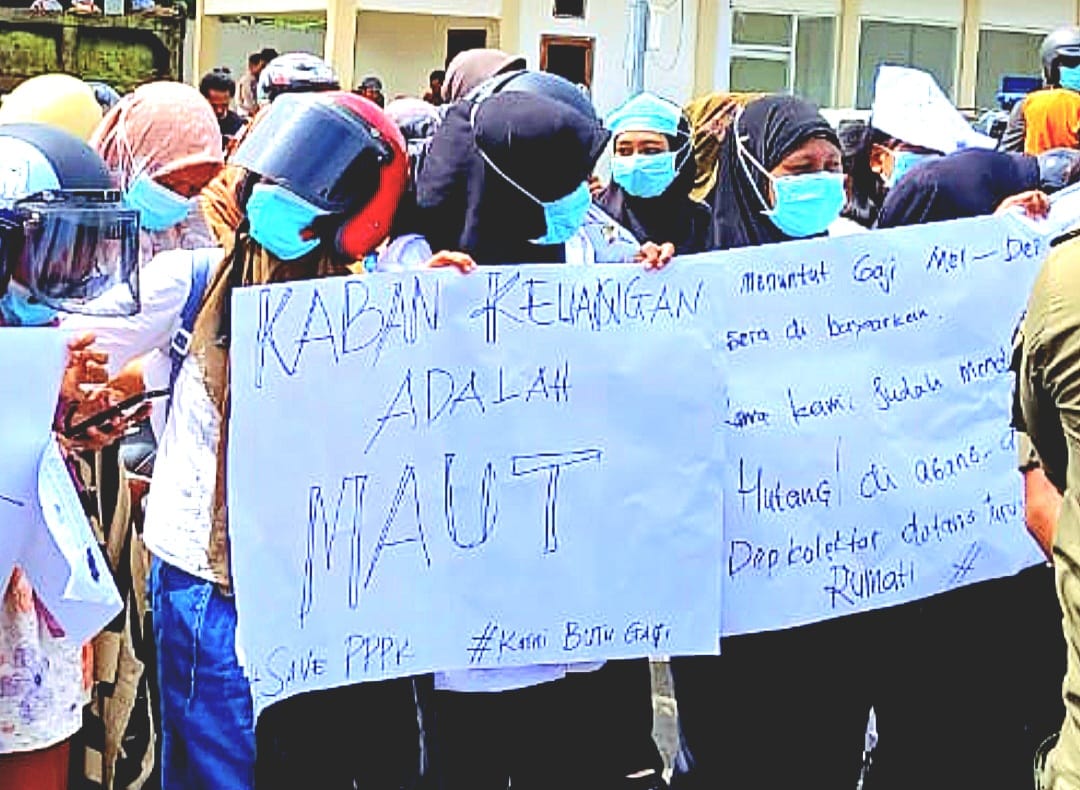 KABAN KEUANGAN
ADALAH
MAUT
#SAVE PPPK #Kami BUTU GAJI
Menuntut Gaji Mei - Des
di bayarkan.
kami Sudah
Hutang di
Depkolektor datang
Rumah #